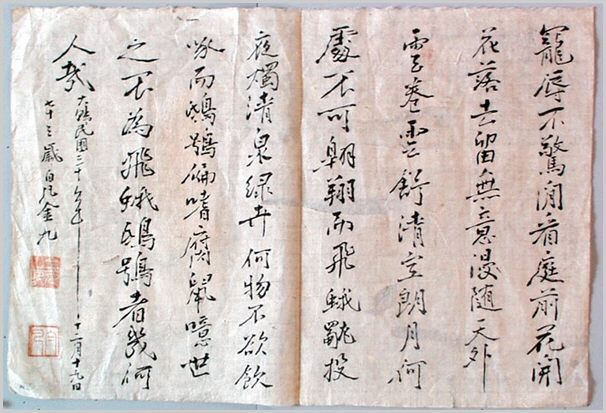 寵辱不驚閒看庭前花開
花落去留無意漫隨天外
雲卷雲舒清空朗月何
處不可翱翔而飛蛾獨投
夜燭清泉綠卉何物不欲飲
啄而鴟鴞偏嗜腐鼠噫世
之不為飛蛾鴟鴞者幾何
人哉
大韓民國 年 十二月十九日
七十三歲白凡金九